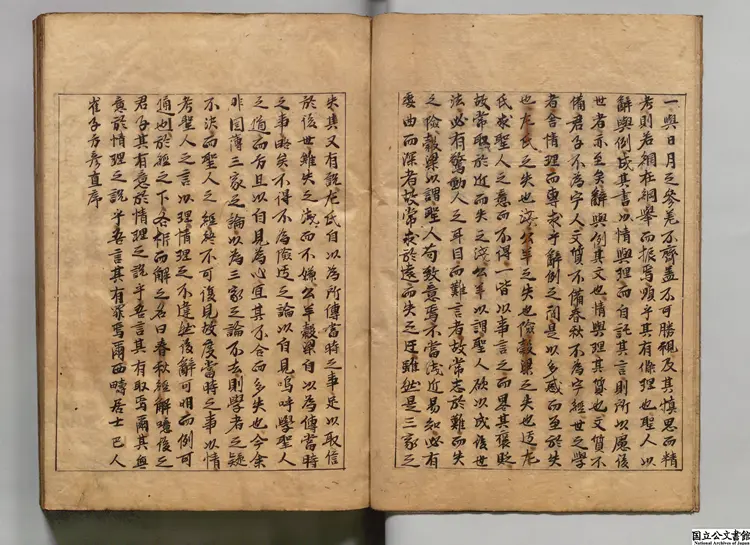 一與日月之參差不齊蓋不可勝視及其慎思而精
考則若網在綱舉而振焉順乎其有條理也聖人以
辭與例成其書以情與理而自託其言則所以慮後
世者亦至矣辭與例其文也情與理其質也文質不
備君子不為字人文質不備春秋不為字經世之學
者舍情理而專求乎辭例之間是以多惑而至於失
也左氏之失也淺公羊之失也險穀梁之失也迂左
氏求聖人之意而不得一皆以事言之而畧其褒貶
故常取於近而失之淺公羊以謂聖人欲以成後世
法必有驚動人之耳目而難言者故常志於難而失
之險穀梁以謂聖人苟致意焉不當淺近易知必有
委曲而深者故常求於遠而失之迂雖然是三家之
失其又有說左氏自以為所傳當時之事足以取信
於後世雖失之淺而不嫌公羊穀梁自以為傳當時
之事略矣不得不為險迂之論以自見嗚呼學聖人
之道而后且以自見為心宜其不合而多失也今余
非固薄三家之論以為三家之論不去則學者之疑
不決而聖人之經終不可復見故度當時之事以情
考聖人之言以理情理之不違然後辭可明而例可
通也於經之下各析而解之名曰春秋經解噫後之
君子其有意於情理之說乎吾言其有取焉爾其無
意於情理之說乎吾言其有罪焉爾西疇居士巴人
崔子方彥直序
国立公文書館
National Archives of Japan